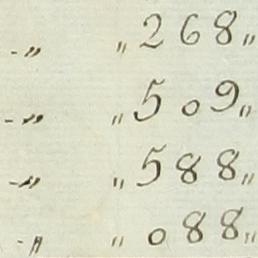 -„ „ 268„
-„ „ 509„
-„ „ 588„
-„ „ 088„